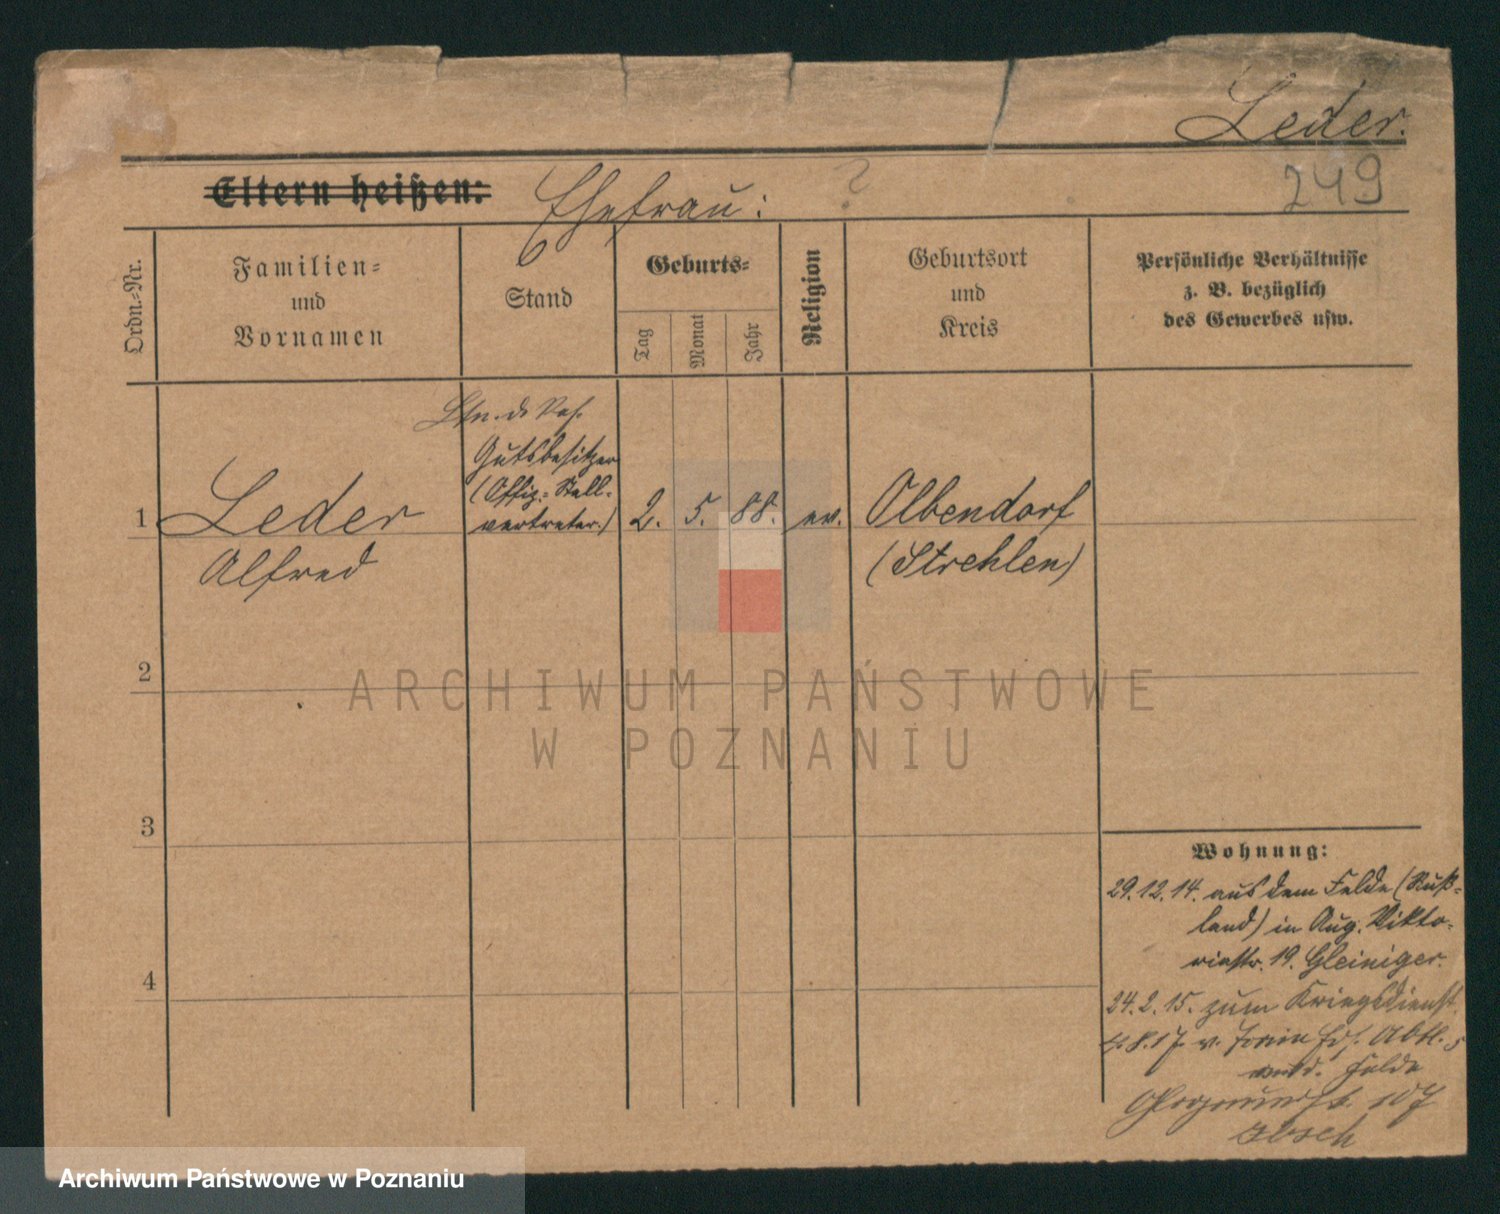 Leder.
249
Eltern heißen: Ehefrau: ?
Ordn.-Nr.
Familien-
und
Vornamen
Stand
Geburts-
Tag
Monat
Jahr
Religion
Geburtsort
und
Kreis
Persönliche Verhältnisse
z. B. bezüglich
des Gewerbes usw.
Ltn. d. Res.
Gutsbesitzer
(Offiz.-Stell-
vertreter.)
1 Leder 2. 5. 88. ev. Olbendorf
Alfred (Strehlen)
2
3
4
ARCHIWUM PAŃSTWOWE
W POZNANIU
Wohnung:
29.12.14. aus dem Felde (Ruß-
land) in Aug. Vikto-
riastr. 19. Gleiniger.
24.2.15. zum Kriegsdienst
8.17 v. Abtl.
Felde
107
Archiwum Państwowe w Poznaniu